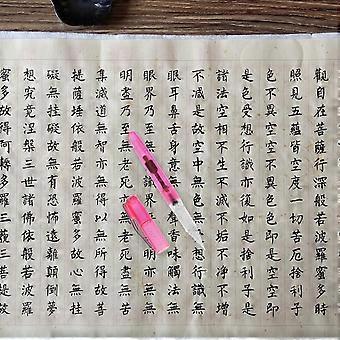 觀自在菩薩行深般若波羅蜜多時
照見五蘊皆空度一切苦厄捨利子
色不異空空不異色色即是空空即
是色受想行識亦復如是捨利子是
諸法空相不生不滅不垢不淨不增
不減是故空中無色無想行識無
眼耳鼻舌身意香味觸法無
眼界乃至無明亦無無
明盡乃至無老死亦無老死盡無苦
集滅道無智亦無得以無所得故菩
提薩埵依般若波羅蜜多故心無桂
礙無桂礙故無有恐怖遠離顛倒夢
想究竟涅槃三世諸佛依般若波羅
蜜多故得阿耨多羅三藐三菩提故